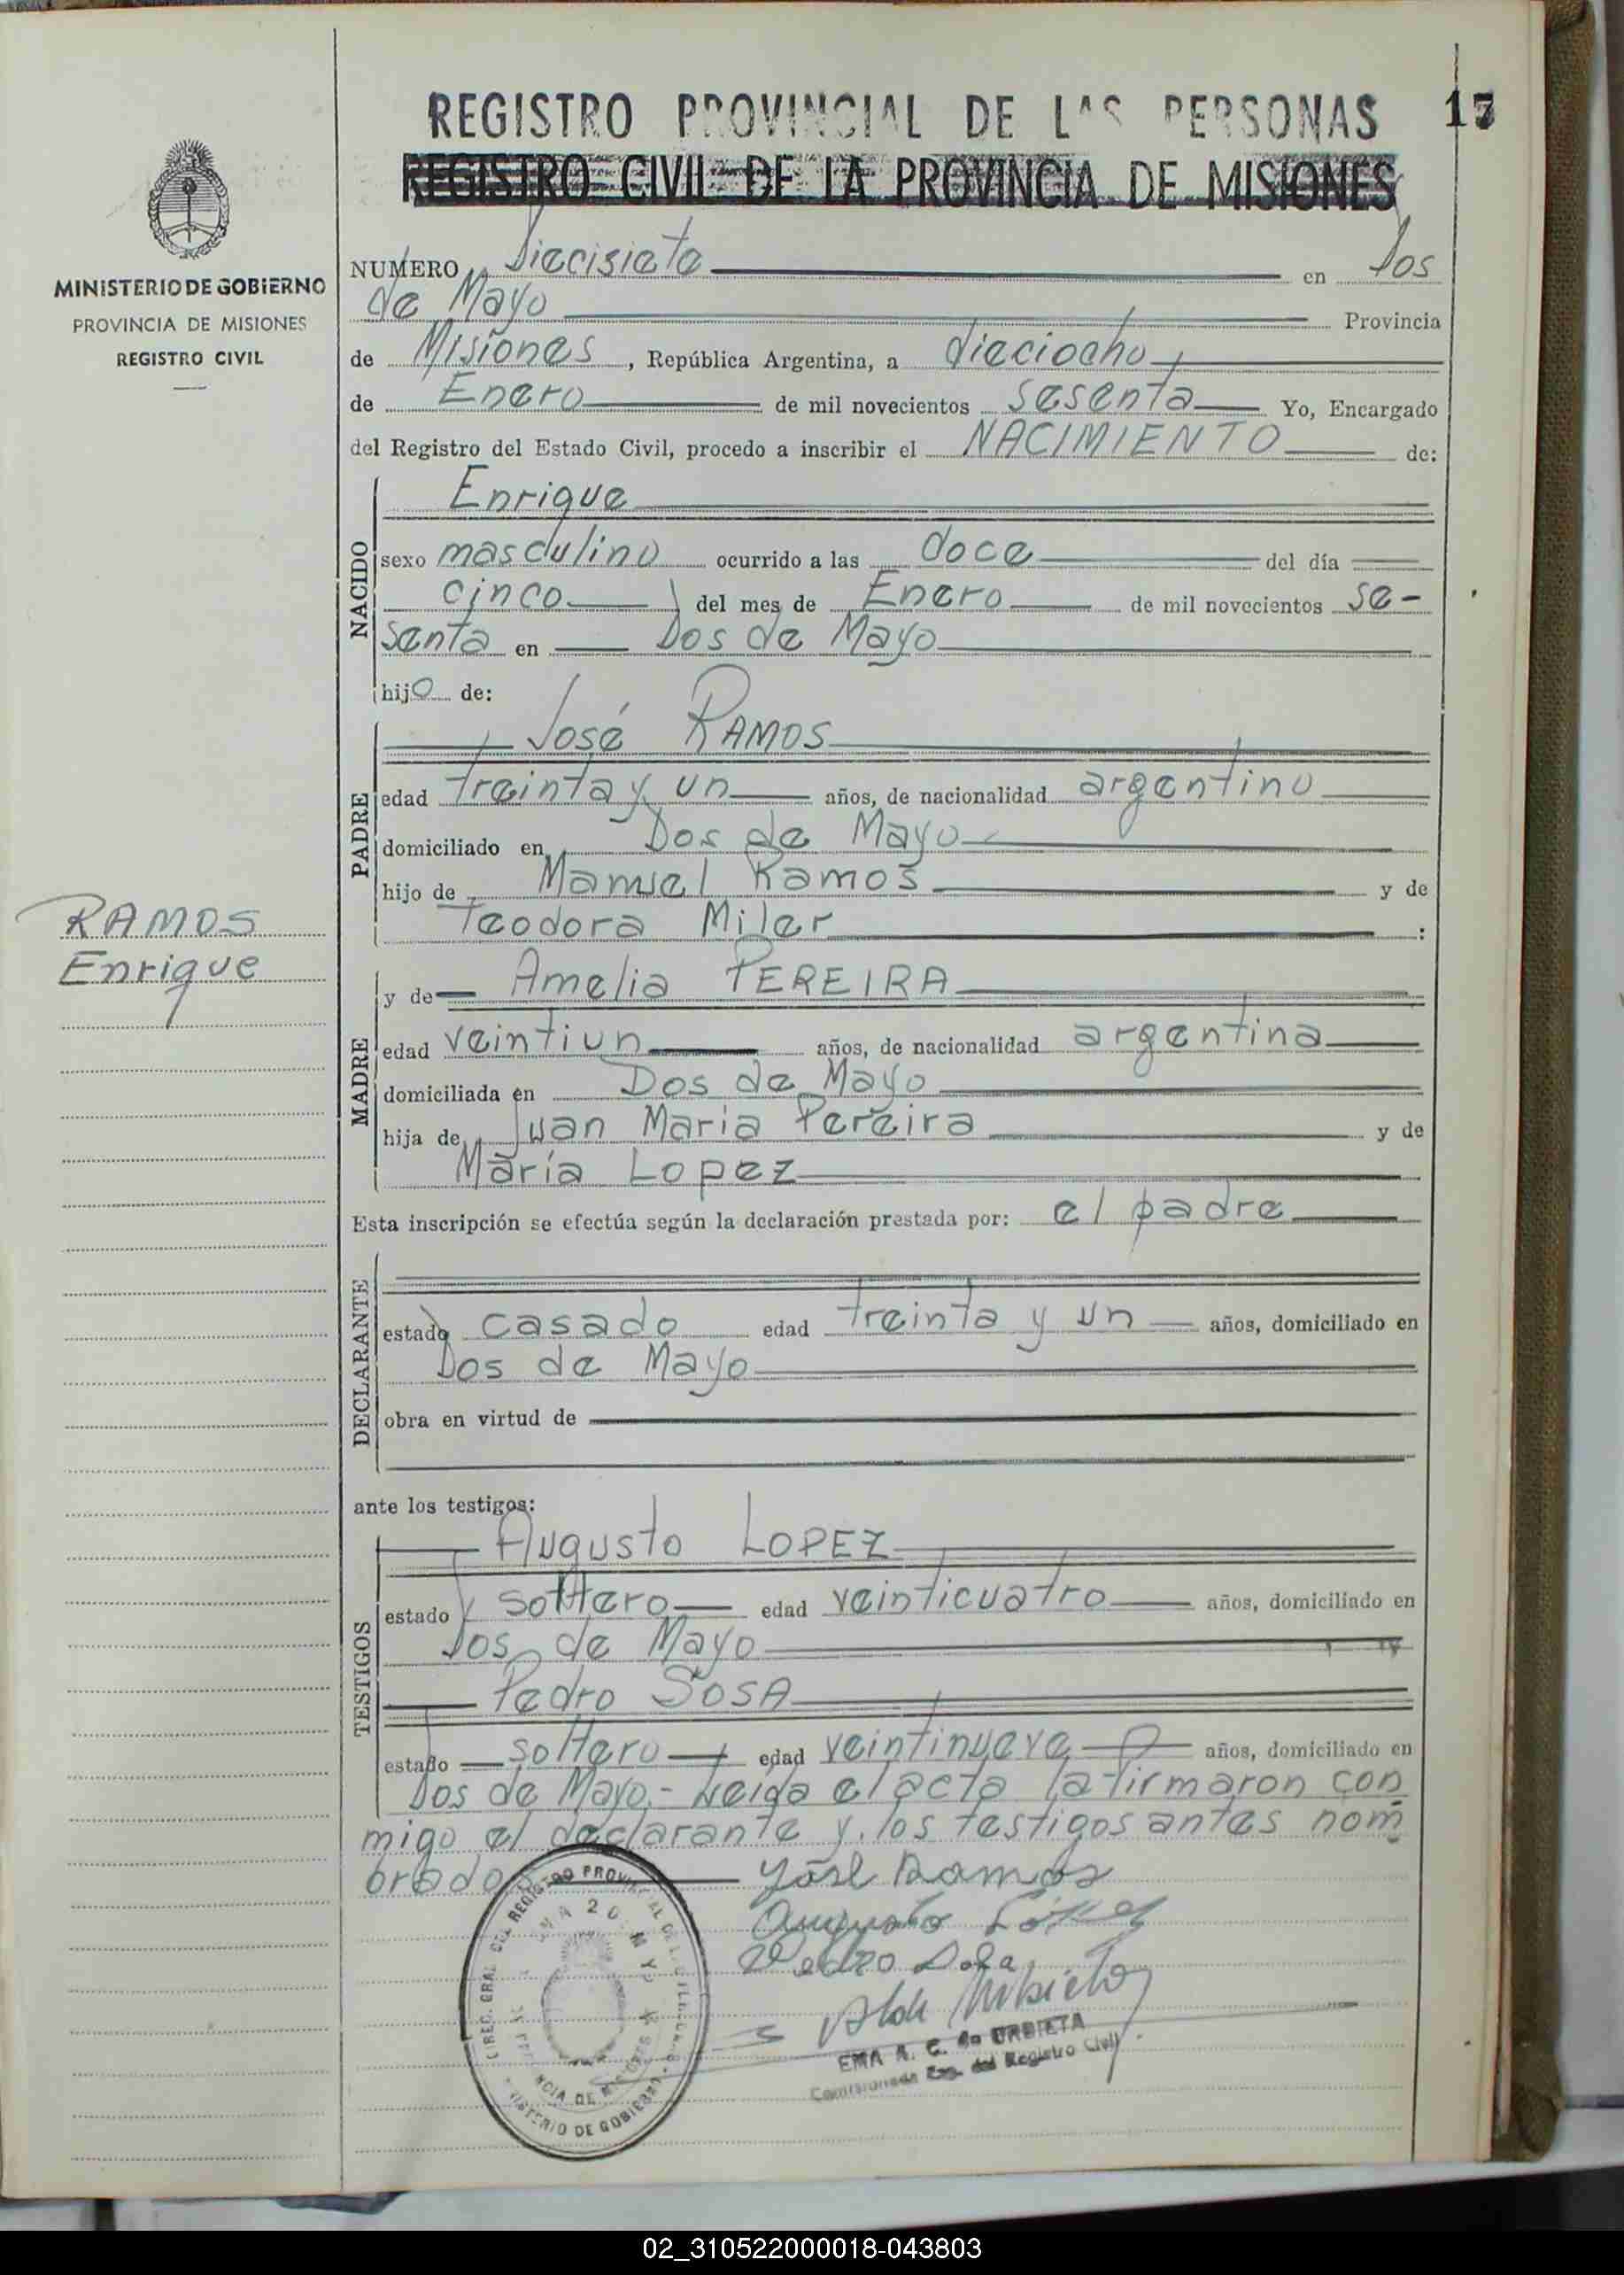 REGISTRO PROVINCIAL DE LAS PERSONAS 17
REGISTRO CIVIL DE LA PROVINCIA DE MISIONES
MINISTERIO DE GOBIERNO
PROVINCIA DE MISIONES
REGISTRO CIVIL
RAMOS
Enrique
NUMERO Diecisiete en Dos
de Mayo Provincia
de Misiones, República Argentina, a dieciocho
de Enero de mil novecientos sesenta Yo, Encargado
del Registro del Estado Civil, procedo a inscribir el NACIMIENTO de:
NACIDO
Enrique
sexo masculino ocurrido a las doce del día
cinco del mes de Enero de mil novecientos se-
senta en Dos de Mayo
hijo de:
PADRE
José RAMOS
edad treinta y un años, de nacionalidad argentino
domiciliado en Dos de Mayo
hijo de Manuel Ramos y de
Teodora Miler :
MADRE
y de Amelia PEREIRA
edad veintiun años, de nacionalidad argentina
domiciliada en Dos de Mayo
hija de Juan Maria Pereira y de
María Lopez
Esta inscripción se efectúa según la declaración prestada por: el padre
DECLARANTE
estado casado edad treinta y un años, domiciliado en
Dos de Mayo
obra en virtud de
ante los testigos:
TESTIGOS
Augusto LOPEZ
estado soltero edad veinticuatro años, domiciliado en
Dos de Mayo
Pedro SOSA
estado soltero edad veintinueve años, domiciliado en
Dos de Mayo.- Leida el acta la firmaron con
migo el declarante y los testigos antes nom
brados
José Ramos
Augusto López
Pedro Sosa
EMA A. C. de URBIETA
Encg. del Registro Civil
DIREC. GRAL. DEL REGISTRO PROVINCIAL DE LAS
MINISTERIO DE GOBIERNO
PROVINCIA DE MISIONES
02_310522000018-043803